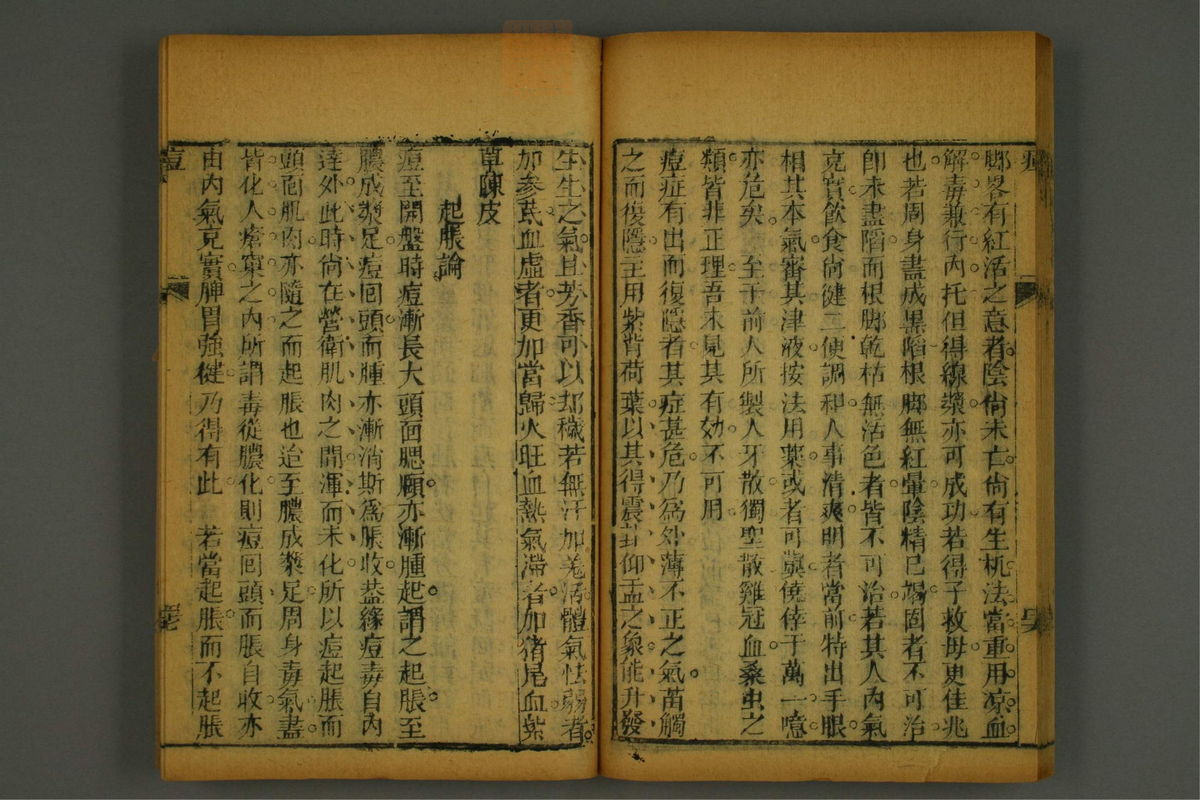 脚畧有紅活之意者陰尙未亡尙有生机法當重用凉血
解毒兼行內托但得線漿亦可成功若得子救母更佳兆
也若周身盡成黑陷根脚無紅暈陰精已竭固者不可治
卽未盡陷而根脚乾枯無活色者皆不可治若其人內氣
充實飮食尙健二便調和人事清爽明者當前特出手眼
相其本氣審其津液按法用藥或者可冀僥倖于萬一噫
亦危矣 至于前人所製人牙散獨聖散雞冠血桑虫之
類皆非正理吾未見其有効不可用
痘症有出而復隱者其症甚危乃爲外薄不正之氣啬觸
之而復隱主用紫背荷葉以其得震卦仰盂之象能升發
生生之氣且芳香可以却穢若無汗加羌活體氣怯弱者
加參芪血虛者更加當歸火旺血熱氣滯者加猪尾血紫
草陳皮
起脹論
痘至開盤時痘漸長大頭面腮頤亦漸腫起謂之起脹至
膿成漿足痘囘頭而腫亦漸消斯爲脹收葢緣痘毒自內
達外此時尙在營衛肌肉之間渾而未化所以痘起脹而
頭面肌肉亦隨之而起脹也迨至膿成漿足周身毒氣盡
皆化入瘡窠之內所謂毒從膿化則痘囘頭而脹自收亦
由內氣充實脾胃強健乃得有此 若當起脹而不起脹
痘